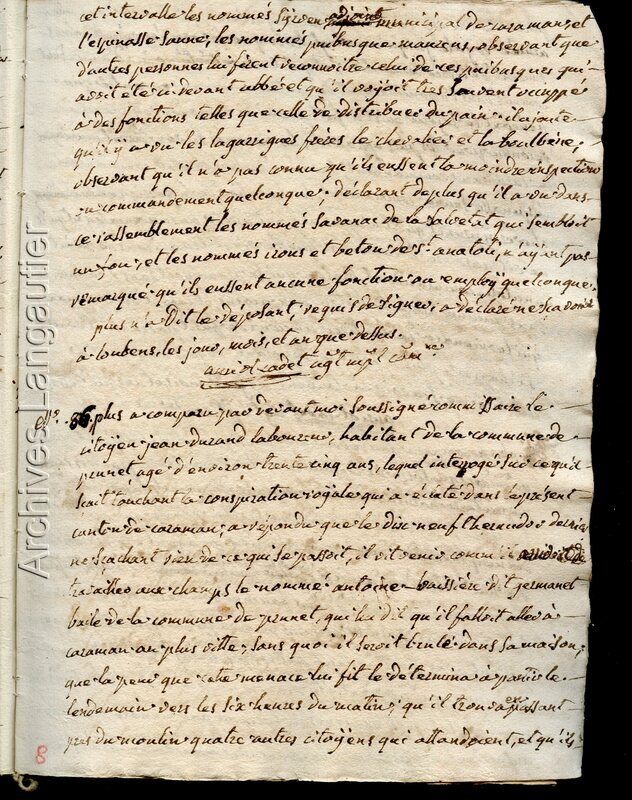 cet intervalle les nommés Syrven adjoint municipal de caraman, et
l'espinasse Sanne, les nommés puibusque maniens, observant que
d'autres personnes lui firent reconnoitre celui de ces puibusques qui
avoit été ci devant abbé et qu'il voyoit tres Souvent occuppé
à des fonctions telles que celle de distribuer du pain. il ajoute
qu'il y a vu les lagarrigues frères le chevalier et la boulbène,
observant qu'il n'a pas connu qu'ils eussent la moindre inspection
ou commandement quelconque, déclarant de plus qu'il a vu dans
ce rassemblement les nommés Savanac de la Salvetat qui Sembloit
un fou, et les nommés irons et beton de St. anatoli, n'ayant pas
remarqué qu'ils eussent aucune fonction ou employ quelconque,
plus n'a dit le déposant, requis de Signer, a déclaré ne Savoir
à loubens, les jour, mois, et an que dessus.
cadet agt. mpl. Comre.
86. plus a comparu par devant moi Soussigné commissaire le
citoyen jean durand laboureur, habitant de la commune de
prunet agé d'environ trente cinq ans, lequel interrogé Sur ce qu'il
Sait touchant la conspiration royale qui a éclaté dans le présent
canton de caraman, a répondu que le dix neuf thermidor dernier
ne Sachant rien de ce qui se passoit, il vit venir comme il
travailler aux champs le nommé antoine baissière dit germanet
baile de la commune de prunet, qui lui dit qu'il falloit aller à
caraman au plus vitte, Sans quoi il Seroit brulé dans Sa maison,
que la peur que cette menace lui fit le détermina à partir le
lendemain vers les Six heures du matin, qu'il trouva en passant
pres du moulin quatre autres citoyens qui attandoient, et qu'ils
8
Archives_Langautier